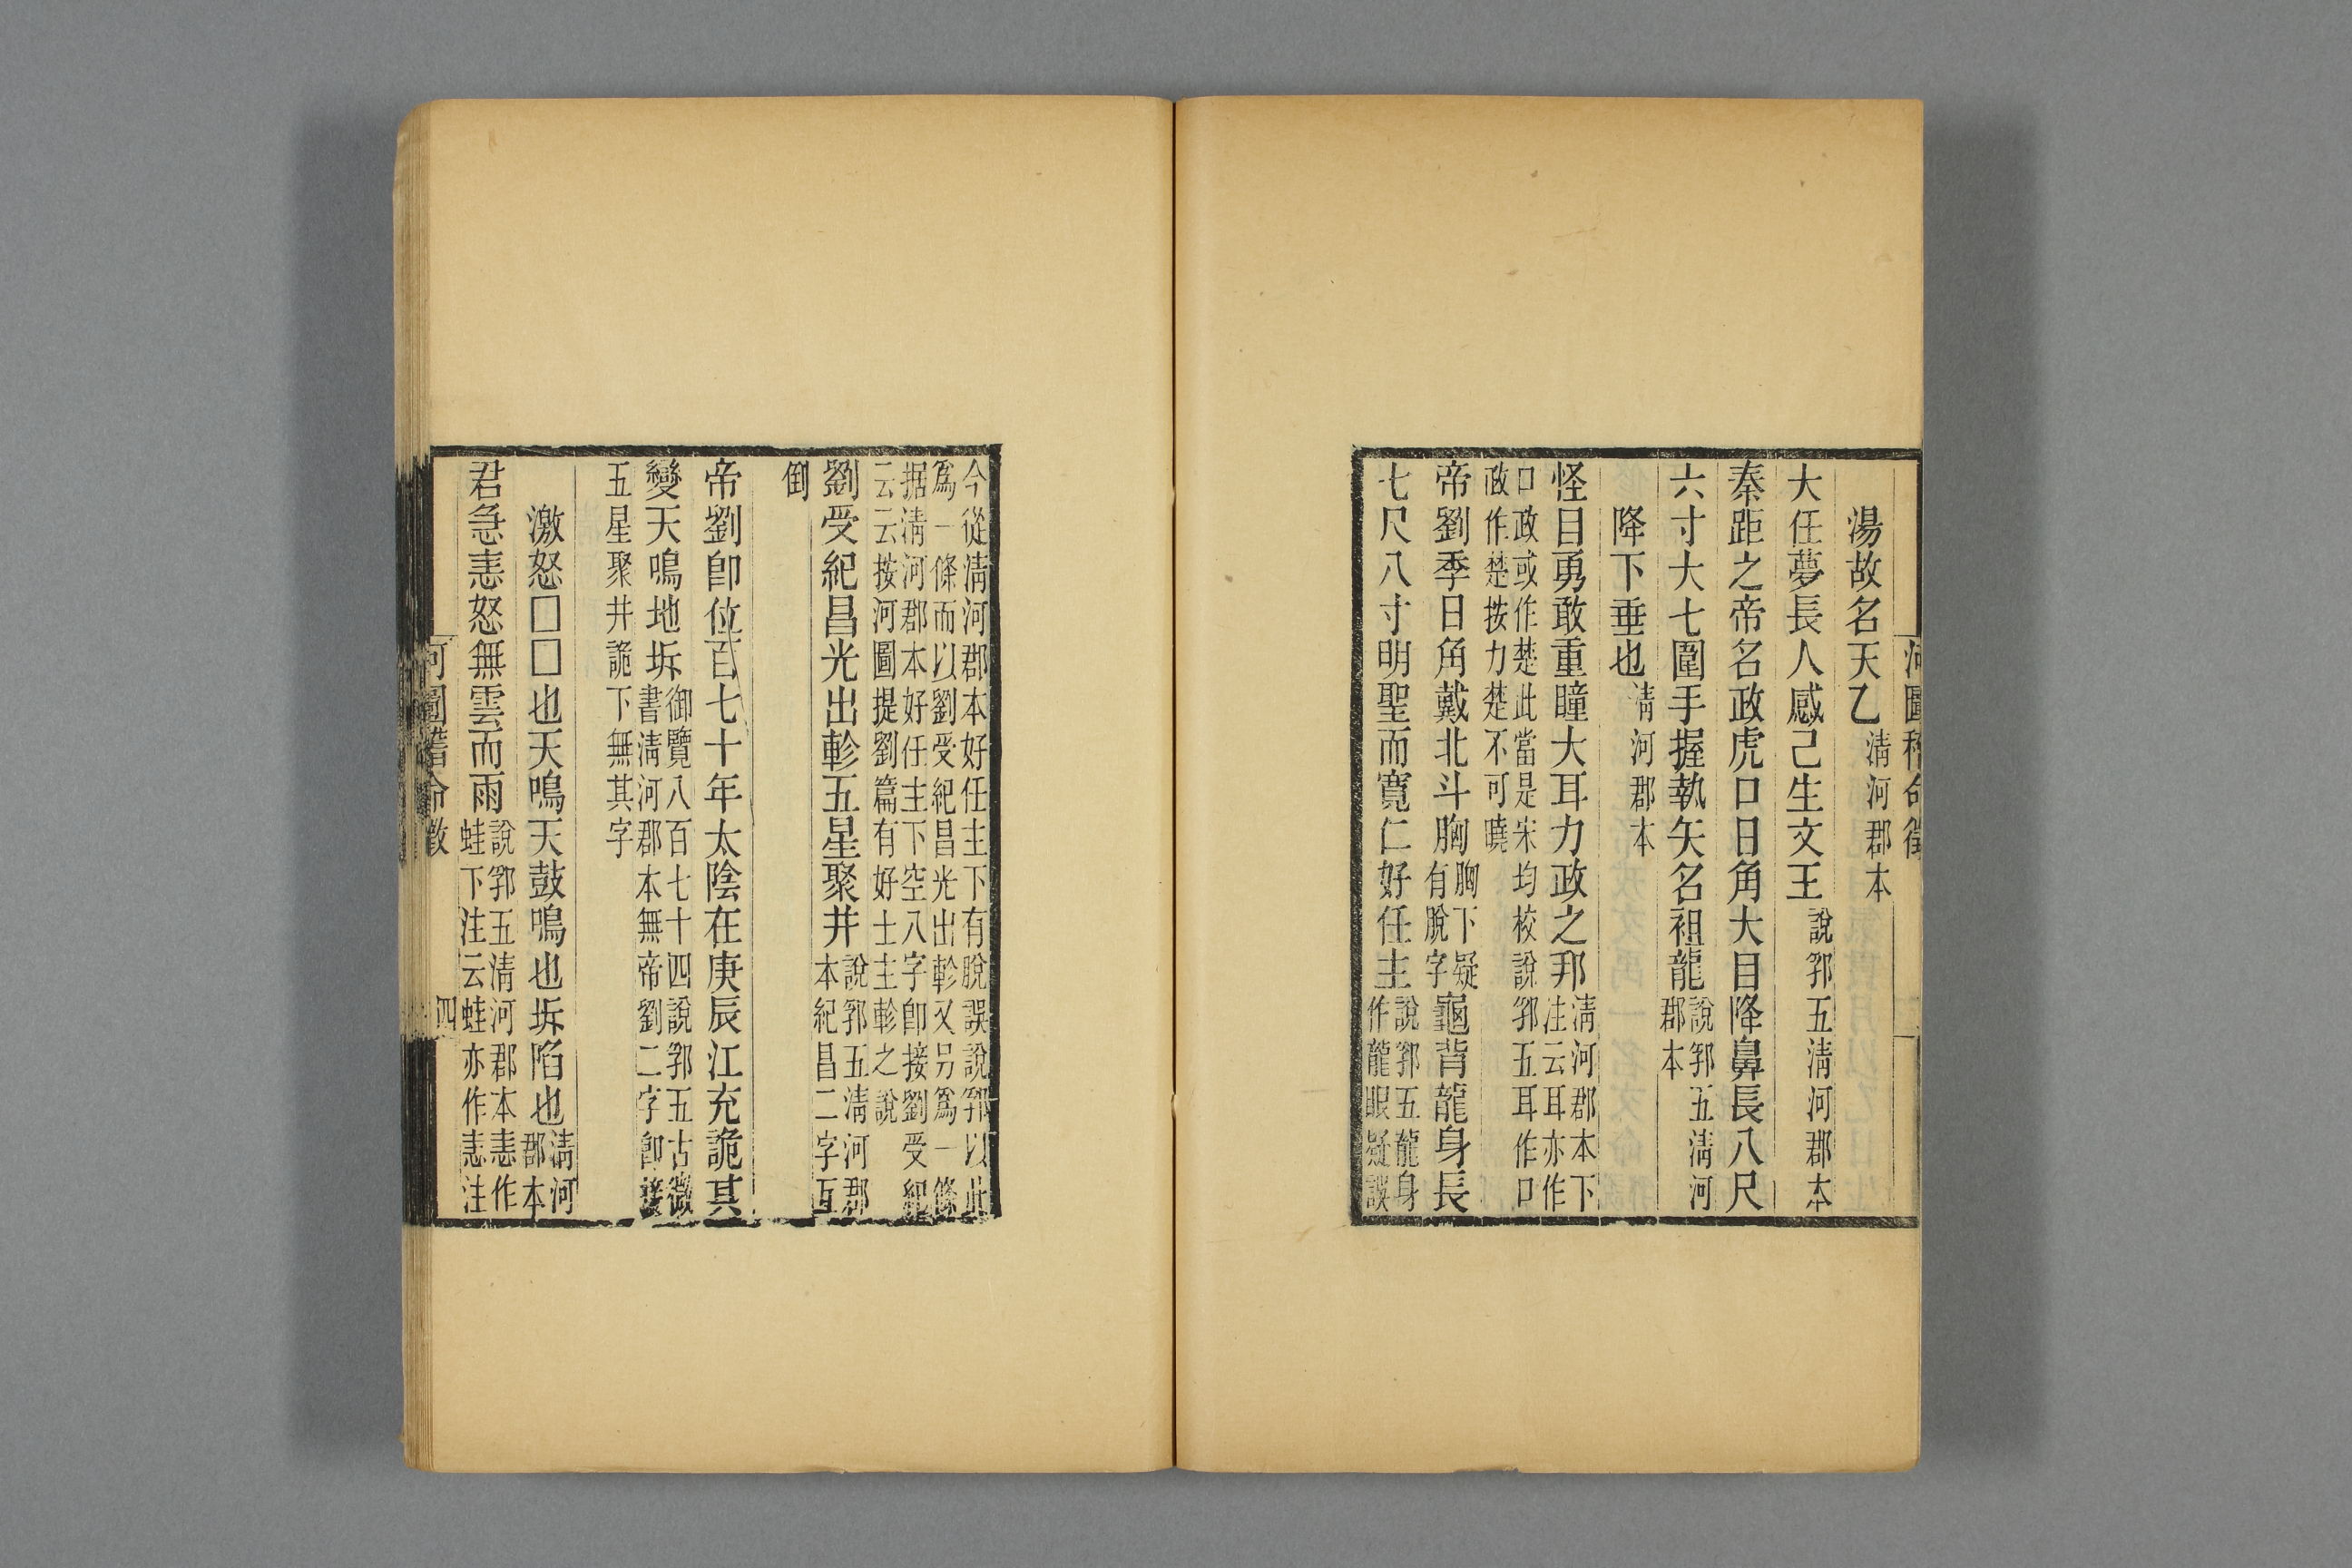 湯故名天乙清河郡本
大任夢長人感己生文王說郛五清河郡本
秦距之帝名政虎口日角大目降鼻長八尺
六寸大七圍手握執矢名祖龍說郛五清河郡本
降下垂也清河郡本
怪目勇敢重瞳大耳力政之邦清河郡本下注云耳亦作
口政或作楚此當是宋均校說郛五耳作口
政作楚按力楚不可曉
帝劉季日角戴北斗胸胸下疑有脫字龜背龍身長
七尺八寸明聖而寬仁好任主說郛五龍身作龍眼疑誤
今從清河郡本好任主下有脫誤說郛以此
爲一條而以劉受紀昌光出軫又另爲一條
据清河郡本好任主下空八字卽接劉受紀
云云按河圖提劉篇有好士主軫之說
劉受紀昌光出軫五星聚井說郛五清河郡本紀昌二字互
倒
帝劉卽位百七十年太陰在庚辰江充詭其
變天鳴地坼御覽八百七十四說郛五古微書清河郡本無帝劉二字卽接
五星聚井詭下無其字
激怒□□也天鳴天鼓鳴也坼陷也清河郡本
君急恚怒無雲而雨說郛五清河郡本恚作蛙下注云蛙亦作恚注
四